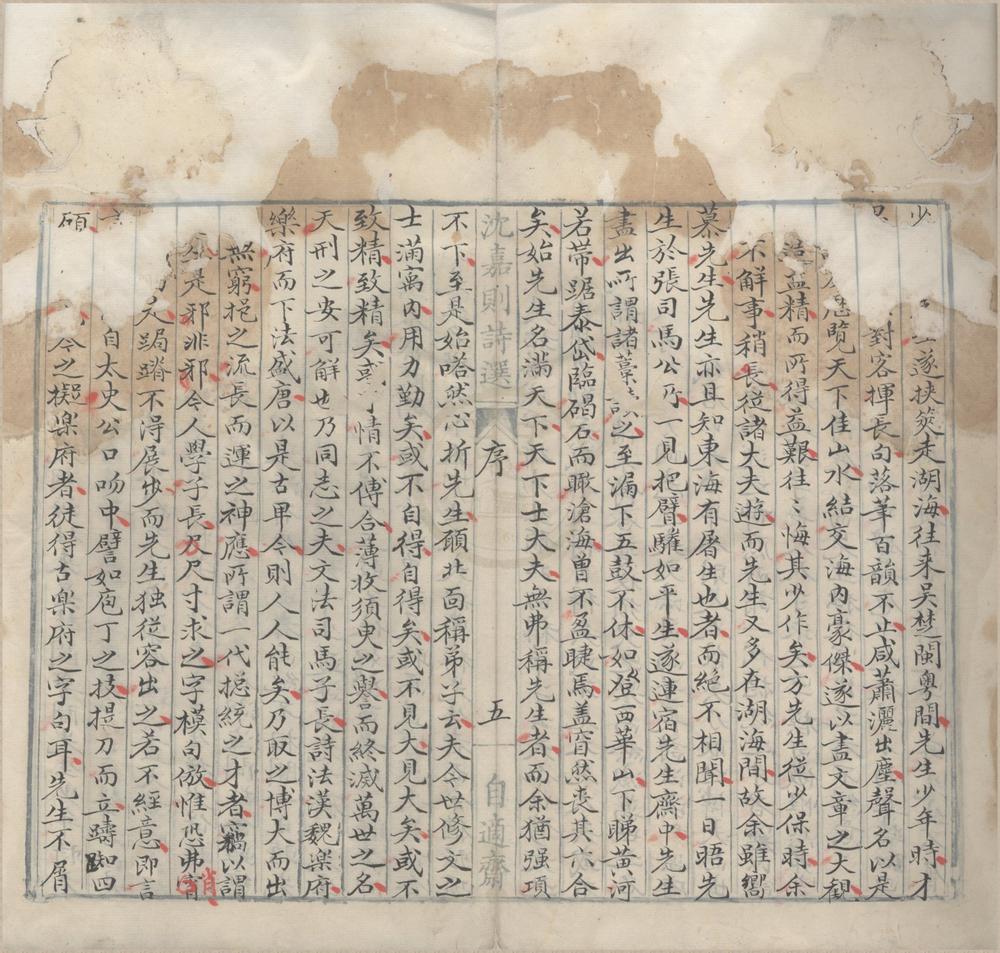 少 遂挾筴走湖海往来吴楚閩粤間先生少年時才
對客揮長句落筆百韻不止咸蕭灑出塵聲名以是
歷覽天下佳山水結交海內豪傑遂以盡文章之大觀
益精而所得益艱往〻悔其少作矣方先生從少保時余
不解事稍長從諸大夫遊而先生又多在湖海間故余雖嚮
慕先生先生亦且知東海有屠生也者而絕不相聞一日晤先
生於張司馬公所一見把臂驩如平生遂連宿先生齋中先生
盡出所謂諸藁 之至漏下五鼓不休如登西華山下睇黃河
若帶踞泰岱臨碣石而瞰滄海曾不盈睫焉盖窅然喪其六合
矣始先生名滿天下天下士大夫無弗稱先生者而余猶强項
沈嘉則詩選 序 五 自適齋
不下至是始嗒然心折先生頭北面稱弟子云夫今世修文之
士滿寓內用力勤矣或不自得自得矣或不見大見大矣或不
致精致精矣或 情不傅合薄收須臾之譽而終滅萬世之名
天刑之安可解也乃同志之夫文法司馬子長詩法漢魏樂府
樂府而下法盛唐以是古卑今則人人能矣乃取之博大而出
無窮挹之流長而運之神應所謂一代搃統之才者竊以謂
是邪非邪今人學子長尺尺寸求之字模句倣惟恐弗肖
天跼蹐不得展步而先生独從容出之若不經意即言
言 自太史公口吻中譬如庖丁之技提刀而立躊躇四
碩 今之擬樂府者徒得古樂府之字句耳先生不屑